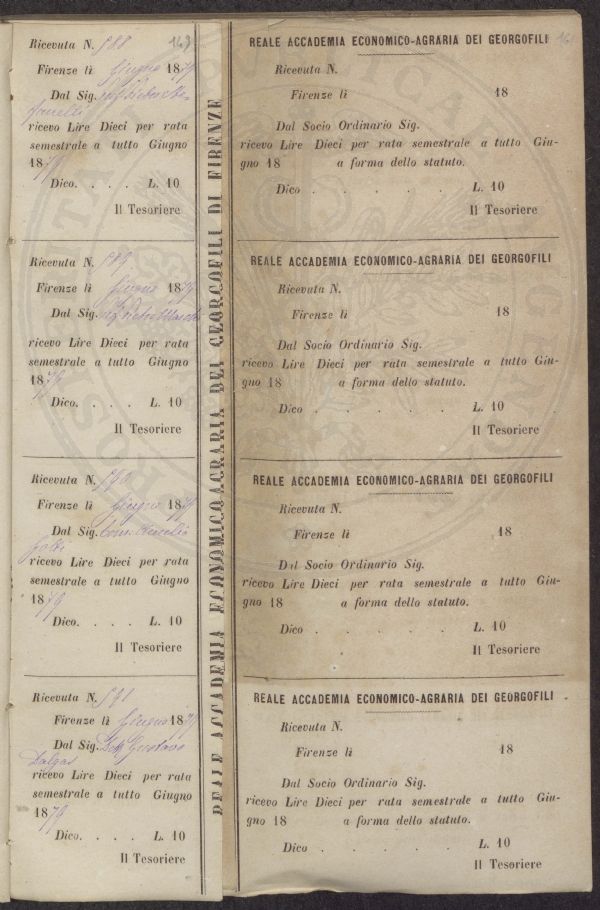 Ricevuta N. 588
Firenze lì Giugno 1879
Dal Sig.
ricevo Lire Dieci per rata
semestrale a tutto Giugno
1879
Dico. . . . L. 10
Il Tesoriere
Ricevuta N. 589
Firenze lì Giugno 1879
Dal Sig.
ricevo Lire Dieci per rata
semestrale a tutto Giugno
1879
Dico. . . . L. 10
Il Tesoriere
Ricevuta N. 590
Firenze lì Giugno 1879
Dal Sig. Com. Aurelio
Gotti
ricevo Lire Dieci per rata
semestrale a tutto Giugno
1879
Dico. . . . L. 10
Il Tesoriere
Ricevuta N. 591
Firenze lì Giugno 1879
Dal Sig. Dott. Gustavo
Dalgas
ricevo Lire Dieci per rata
semestrale a tutto Giugno
1879
Dico. . . . L. 10
Il Tesoriere
REALE ACCADEMIA ECONOMICO AGRARIA DEI GEORGOFILI DI FIRENZE
REALE ACCADEMIA ECONOMICO-AGRARIA DEI GEORGOFILI
Ricevuta N.
Firenze lì 18
Dal Socio Ordinario Sig.
ricevo Lire Dieci per rata semestrale a tutto Giu-
gno 18 a forma dello statuto.
Dico . . . . . L. 10
Il Tesoriere
REALE ACCADEMIA ECONOMICO-AGRARIA DEI GEORGOFILI
Ricevuta N.
Firenze lì 18
Dal Socio Ordinario Sig.
ricevo Lire Dieci per rata semestrale a tutto Giu-
gno 18 a forma dello statuto.
Dico . . . . . L. 10
Il Tesoriere
REALE ACCADEMIA ECONOMICO-AGRARIA DEI GEORGOFILI
Ricevuta N.
Firenze lì 18
Dal Socio Ordinario Sig.
ricevo Lire Dieci per rata semestrale a tutto Giu-
gno 18 a forma dello statuto.
Dico . . . . . L. 10
Il Tesoriere
REALE ACCADEMIA ECONOMICO-AGRARIA DEI GEORGOFILI
Ricevuta N.
Firenze lì 18
Dal Socio Ordinario Sig.
ricevo Lire Dieci per rata semestrale a tutto Giu-
gno 18 a forma dello statuto.
Dico . . . . . L. 10
Il Tesoriere